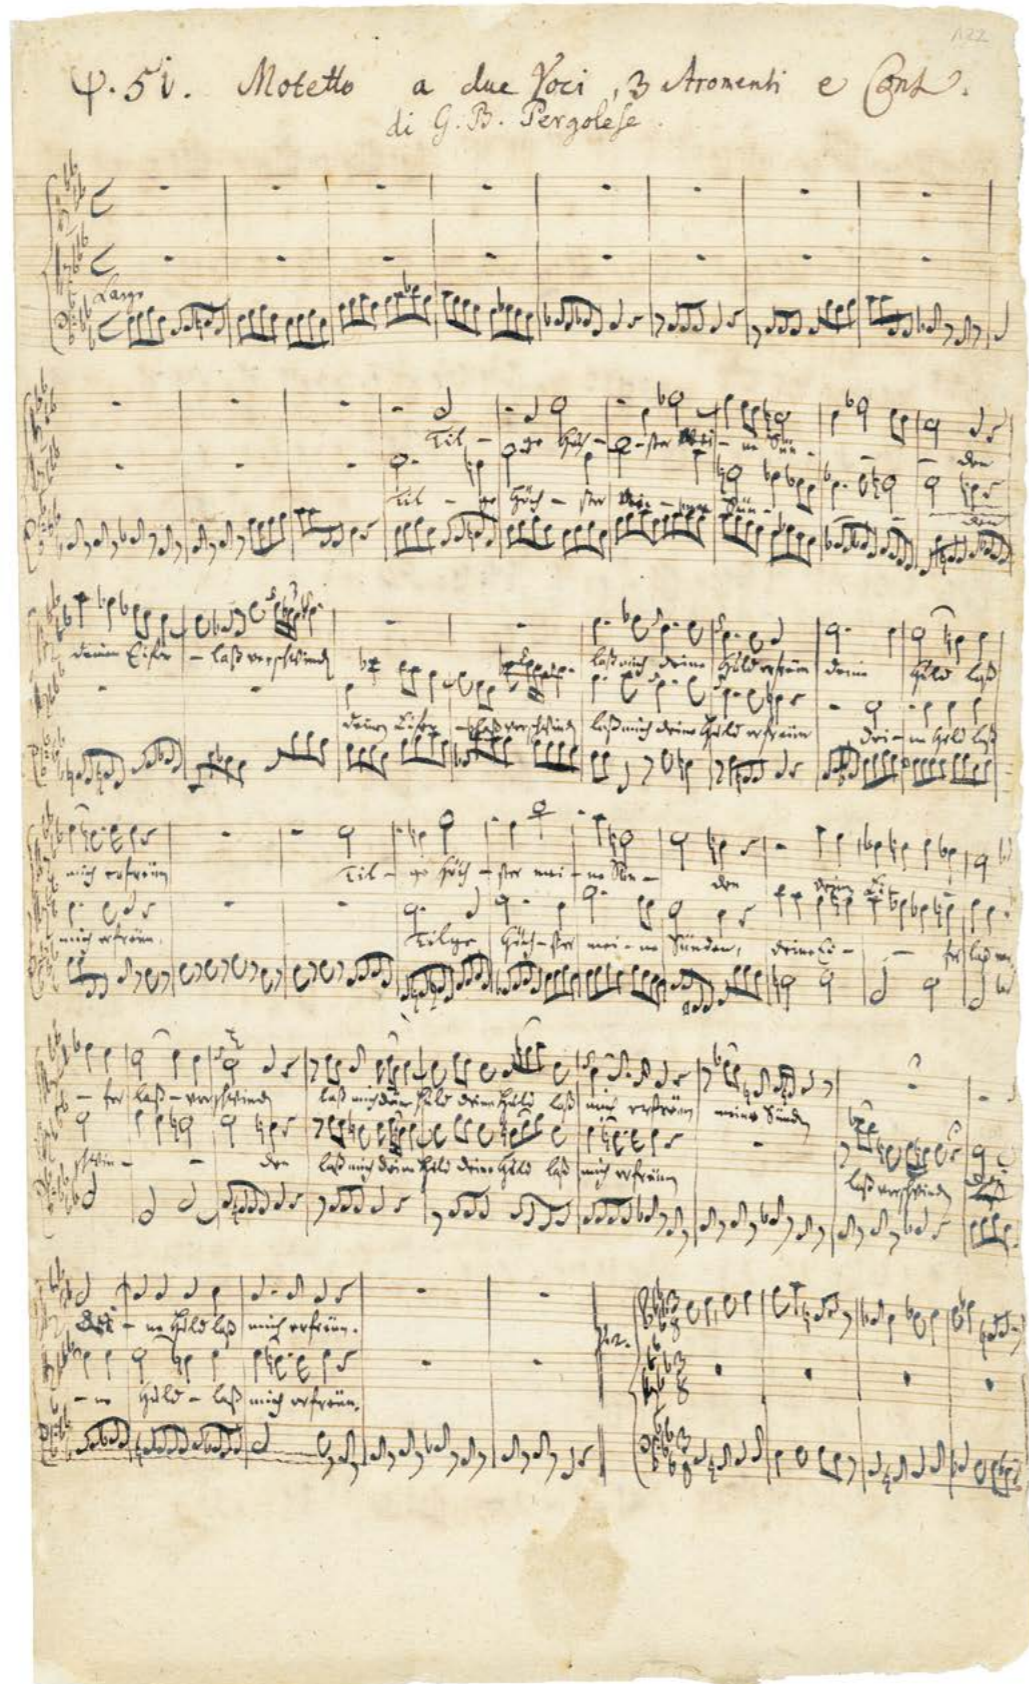 122
Ψ. 51. Motetto a due Voci, 3 Stromenti e Cont.
di G. B. Pergolese.
Largo
Til - ge Höch - ster mei - ne Sün - den
Til - ge Höch - ster mei - ne Sün - den
deinen Eifer - laß verschwinden laß mich deine Huld erfreun deine Huld laß
deinen Eifer - laß verschwinden laß mich deine Huld erfreun dei - ne Huld laß
mich erfreun Til - ge Höch - ster mei - ne Sün - den deinen Ei
mich erfreun. Tilge Höch - ster mei - ne Sünden, deinen Ei - - fer laß ver
- fer laß - verschwinden laß mich deine Huld deine Huld laß mich erfreun meine Sünden
schwin - - den laß mich deine Huld deine Huld laß mich erfreun laß verschwinden
- ne Huld laß mich erfreun.
- ne Huld - laß mich erfreun.
3
8
3
8
3
8